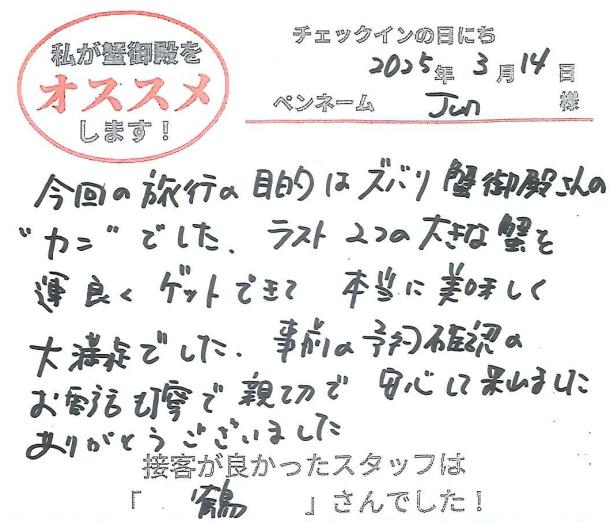 私が蟹御殿を
オススメ
します！
チェックインの日にち
2025年 3月 14日
ペンネーム Jun 様
今回の旅行の目的はズバリ蟹御殿さんの
"カニ"でした、ラスト2つの大きな蟹を
運良くゲットできて 本当に美味しく
大満足でした、事前の予約確認の
お電話も丁寧で親切で 安心して来れました
ありがとうございました
接客が良かったスタッフは
「 鶴 」さんでした！